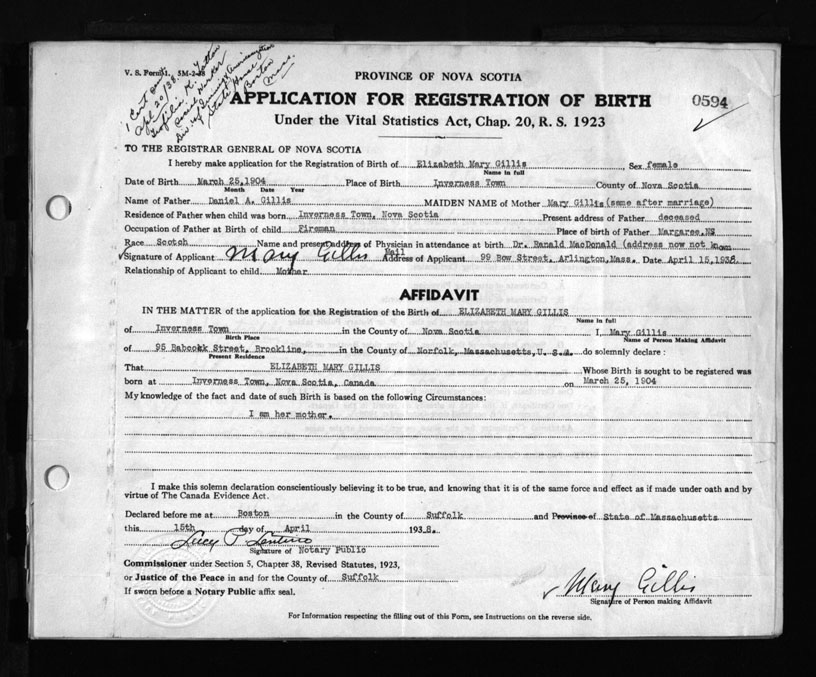 V. S. Form 1. 5M-2-38
1 Cert out
Apl 20/38.
Virginia R. Tatton
Social Worker
Div. of Immig & Americanization
State House
Boston
Mass.
PROVINCE OF NOVA SCOTIA
APPLICATION FOR REGISTRATION OF BIRTH
0594
Under the Vital Statistics Act, Chap. 20, R. S. 1923
TO THE REGISTRAR GENERAL OF NOVA SCOTIA
I hereby make application for the Registration of Birth of Elizabeth Mary Gillis Sex female
Name in full
Date of Birth March 25, 1904 Place of Birth Inverness Town County of Nova Scotia
Month Date Year
Name of Father Daniel A. Gillis MAIDEN NAME of Mother Mary Gillis (same after marriage)
Residence of Father when child was born Inverness Town, Nova Scotia Present address of Father deceased
Occupation of Father at Birth of child Fireman Place of birth of Father Margaree, NS
Race Scotch Name and present address of Physician in attendance at birth Dr. Ranald MacDonald (address now not known
Signature of Applicant Mary Gillis Mail Address of Applicant 99 Bow Street, Arlington, Mass. Date April 15, 1938.
Relationship of Applicant to child Mother
AFFIDAVIT
IN THE MATTER of the application for the Registration of the Birth of ELIZABETH MARY GILLIS
Name in full
of Inverness Town in the County of Nova Scotia I, Mary Gillis
Birth Place Name of Person Making Affidavit
of 95 Babcock Street, Brookline, in the County of Norfolk, Massachusetts, U. S. A. do solemnly declare :
Present Residence
That ELIZABETH MARY GILLIS Whose Birth is sought to be registered was
born at Inverness Town, Nova Scotia, Canada on March 25, 1904
My knowledge of the fact and date of such Birth is based on the following Circumstances:
I am her mother.
I make this solemn declaration conscientiously believing it to be true, and knowing that it is of the same force and effect as if made under oath and by
virtue of The Canada Evidence Act.
Declared before me at Boston in the County of Suffolk and Province of State of Massachusetts
this 15th day of April 1938.
Lucy P.
Signature of Notary Public
Commissioner under Section 5, Chapter 38, Revised Statutes, 1923,
or Justice of the Peace in and for the County of Suffolk
If sworn before a Notary Public affix seal.
Mary Gillis
Signature of Person making Affidavit
For Information respecting the filling out of this Form, see Instructions on the reverse side.